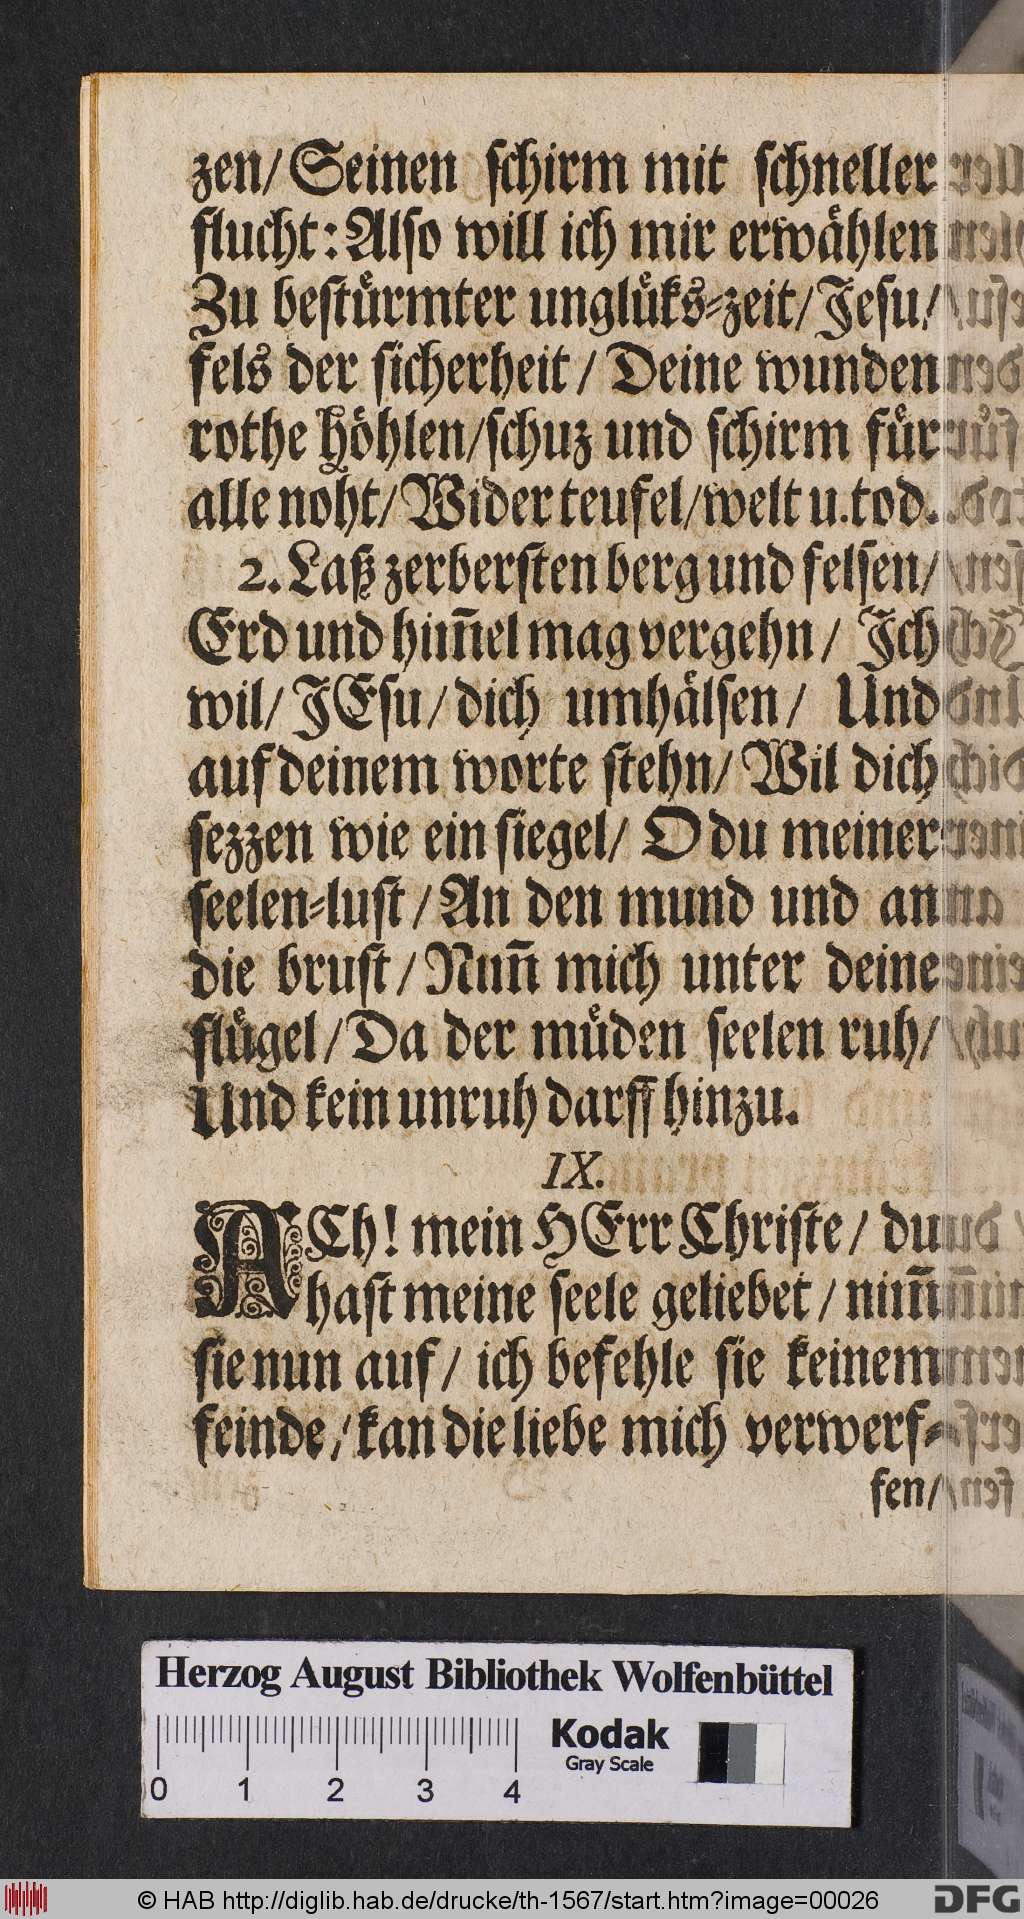 zen/ Seinen ſchirm mit ſchneller
flucht: Alſo will ich mir erwaͤhlen
Zu beſtuͤrmter ungluͤks-zeit/ Jeſu/
fels der ſicherheit/ Deine wunden
rothe hoͤhlen/ ſchuz und ſchirm fuͤr
alle noht/ Wider teufel/ welt u. tod.
2. Laß zerberſten berg und felſen/
Erd und him̃el mag vergehn/ Jch
wil/ JEſu/ dich umhälſen/ Und
auf deinem worte ſtehn/ Wil dich
ſezzen wie ein ſiegel/ O du meiner
ſeelen-luſt/ An den mund und an
die bruſt/ Nun̄ mich unter deine
fluͤgel/ Da der muͤden ſeelen ruh/
Und kein unruh darff hinzu.
IX.
ACh! mein HErr Chriſte/ du
haſt meine ſeele geliebet/ nim̄
ſie nun auf/ ich befehle ſie keinem
feinde/ kan die liebe mich verwerf-
fen/
Herzog August Bibliothek Wolfenbüttel
Kodak
Gray Scale
0 1 2 3 4
© HAB http://diglib.hab.de/drucke/th-1567/start.htm?image=00026
DFG